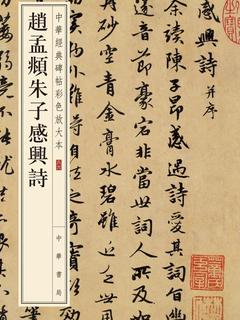 感興詩 并序
余讀陳子昂感遇詩愛其詞旨幽
音節豪宕非當世詞人所及
砂空青金膏水碧雖近乏
難得自然之奇
中華經典碑帖彩色放大本
中華書局
趙孟頫朱子感興詩